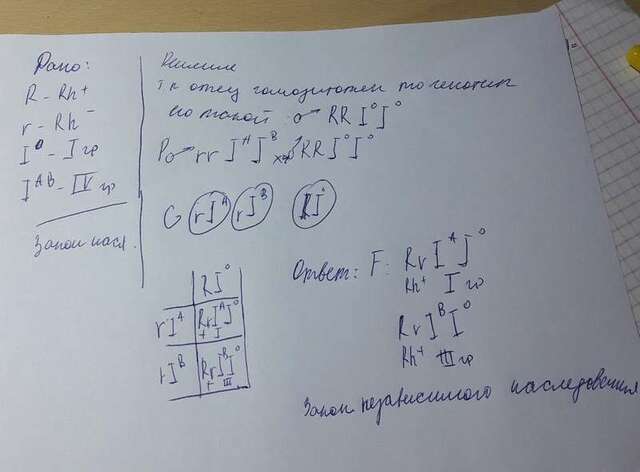 Дано:
R - Rh⁺
r - Rh⁻
I⁰ - I гр
I^AB - IV гр
Закон насл.
Решение
Т к отец гомозиготен то генотип
его такой: ♂ RR I⁰ I⁰
P ♂ rr I^A I^B × ♂ RR I⁰ I⁰
G rI^A rI^B RI⁰
RI⁰
rI^A Rr I^A I⁰
+ I
rI^B Rr I^B I⁰
+ III
Ответ: F: Rr I^A I⁰
Rh⁺ I гр
Rr I^B I⁰
Rh⁺ III гр
Закон независимого наследования